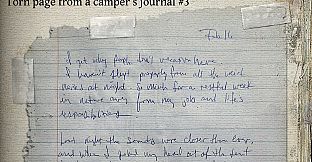 Torn page from a camper's journal #3
Feb 16
I get why folks don't vacation here.
I haven't slept properly from all the weird
noises at night. So much for a restful week
in nature away from my job and life's
responsibilities.
Last night the sounds were closer than ever,
and when I poked my head out of the tent